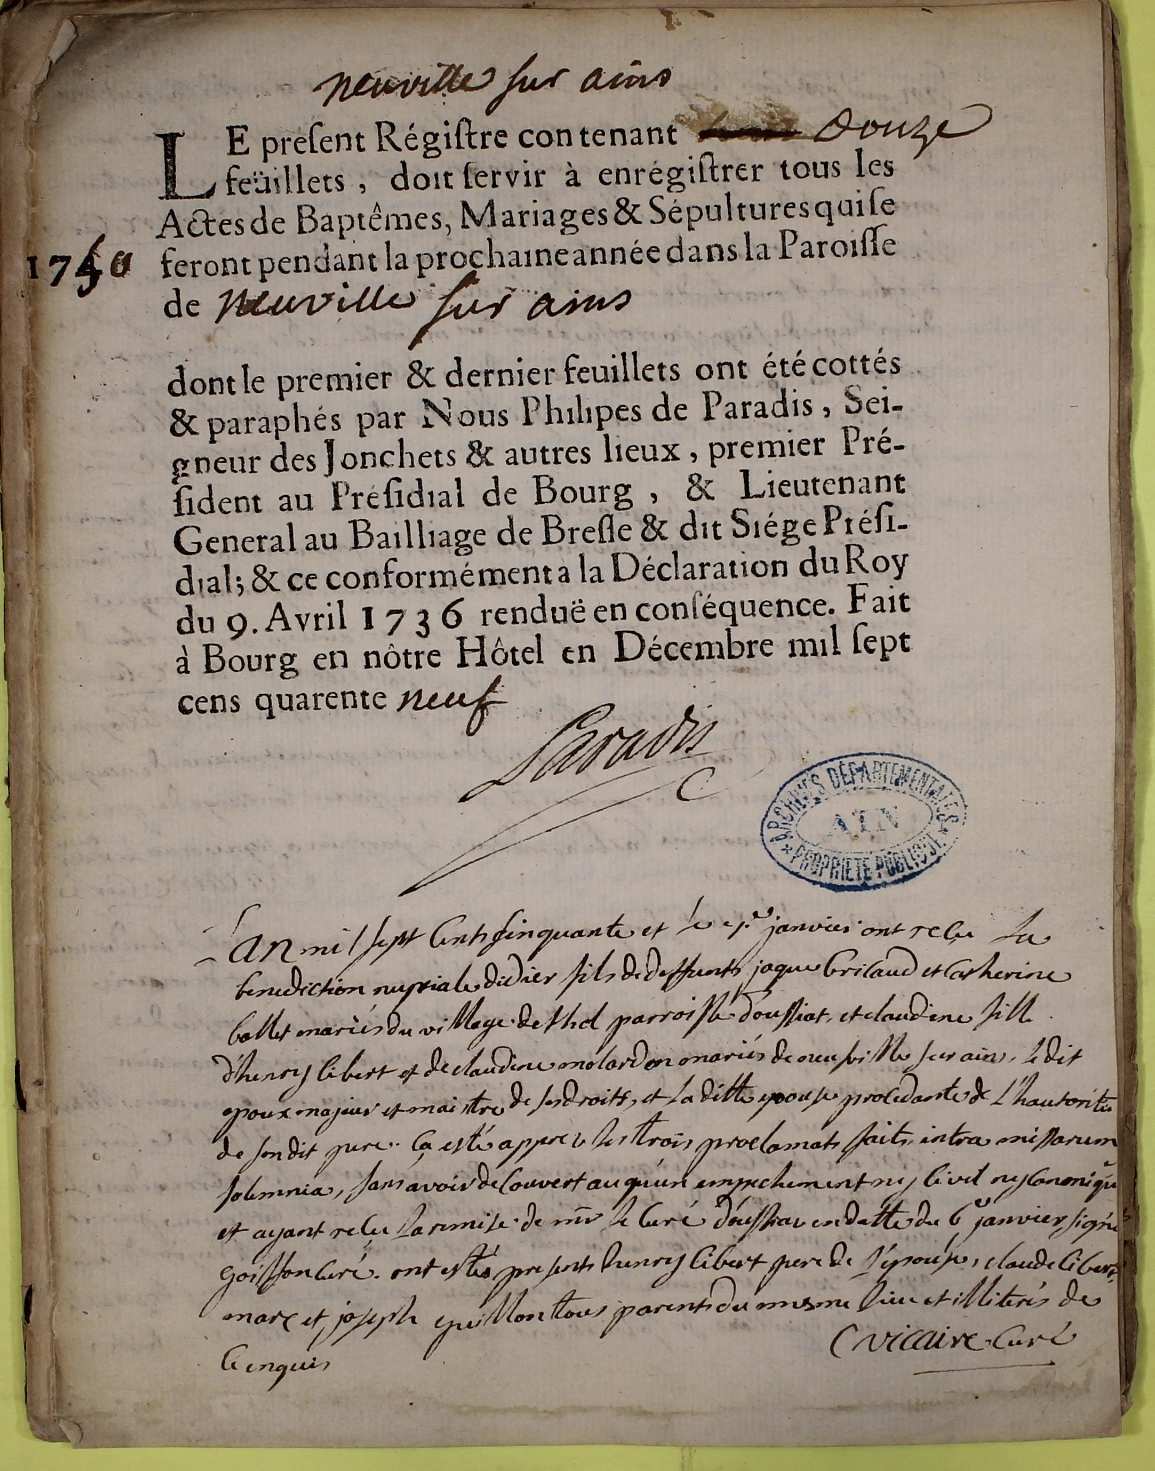 neuville sur ains
LE preſent Régiſtre contenant douze
feüillets, doit ſervir à enrégiſtrer tous les
Actes de Baptêmes, Mariages & Sépultures qui ſe
1750 feront pendant la prochaine année dans la Paroiſſe
de Neuville sur ains
dont le premier & dernier feuillets ont été cottés
& paraphés par Nous Philipes de Paradis, Sei-
gneur des Jonchets & autres lieux, premier Pré-
ſident au Préſidial de Bourg, & Lieutenant
General au Bailliage de Breſſe & dit Siége Préſi-
dial; & ce conformément a la Déclaration du Roy
du 9. Avril 1736 renduë en conſéquence. Fait
à Bourg en nôtre Hôtel en Décembre mil ſept
cens quarente neuf
Paradis
ARCHIVES DÉPARTEMENTALES
AIN
PROPRIÉTÉ PUBLIQUE
L'an mil sept cents cinquante et le janvier ont recu la
benediction nuptiale didier fils de deffunts jaque brilaud et catherine
ballet mariés du village de thol parroisse d'oussiat, et claudine fille
d'henry libert et de claudine molardon mariés de neufville sur ain, le dit
epoux majeur et maistre de ses droits, et la ditte epouse procedante de l'hautorité
de son dit pere. ca esté appres les trois proclamats faits intra missarum
solemnia, sans avoir decouvert auqu'un empechement ny civil ny canonique
et ayant recu la remise de mr le curé d'oussiat en datte du 6e janvier signé
goisson curé. ont estés presents henry libert pere de l'epouse, claude libert,
marc et joseph quillon tous parents du mesme lieu et illiterés de
ce enquis
C vicaire curé